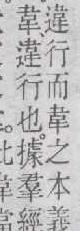 違行而韋之本義
韋違行也。據羣經